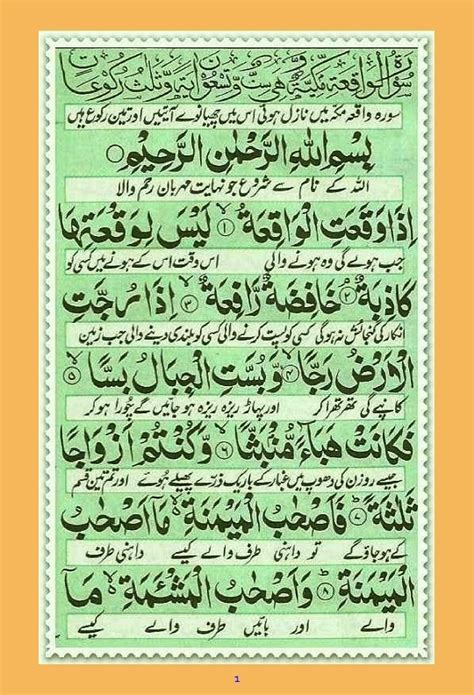 سُوْرَةُ الْوَاقِعَةِ مَكِّيَّةٌ وَّهِيَ سِتٌّ وَّتِسْعُوْنَ اٰيَةً وَّثَلٰثُ رُكُوْعَاتٍ
سورہ واقعہ مکہ میں نازل ہوئی اس میں چھیانوے آیتیں اور تین رکوع ہیں
بِسْمِ اللّٰهِ الرَّحْمٰنِ الرَّحِيْمِ
اللہ کے نام سے شروع جو نہایت مہربان رحم والا
اِذَا وَقَعَتِ الْوَاقِعَةُ ۙ﴿۱﴾ لَيْسَ لِوَقْعَتِهَا
جب ہولے گی وہ ہونے والی اس وقت اس کے ہونے میں کسی کو
كَاذِبَةٌ ۘ﴿۲﴾ خَافِضَةٌ رَّافِعَةٌ ۙ﴿۳﴾ اِذَا رُجَّتِ
انکار کی گنجائش نہ ہوگی کسی کو پست کرنے والی کسی کو بلندی دینے والی جب زمین
الْاَرْضُ رَجًّا ۙ﴿۴﴾ وَّبُسَّتِ الْجِبَالُ بَسًّا ۙ﴿۵﴾
کانپے گی تھر تھرا کر اور پہاڑ ریزہ ریزہ ہو جائیں گے چُورا ہو کر
فَكَانَتْ هَبَآءً مُّنْۢبَثًّا ۙ﴿۶﴾ وَّكُنْتُمْ اَزْوَاجًا
جیسے روزن کی دھوپ میں غبار کے باریک ذرے پھیلے ہوئے اور تم تین قسم
ثَلٰثَةً ؕ﴿۷﴾ فَاَصْحٰبُ الْمَيْمَنَةِ ۙ مَاۤ اَصْحٰبُ
کے ہو جاؤ گے تو داہنی طرف والے کیسے داہنی طرف
الْمَيْمَنَةِ ؕ﴿۸﴾ وَاَصْحٰبُ الْمَشْـَٔمَةِ ۙ مَاۤ
والے اور بائیں طرف والے کیسے
1